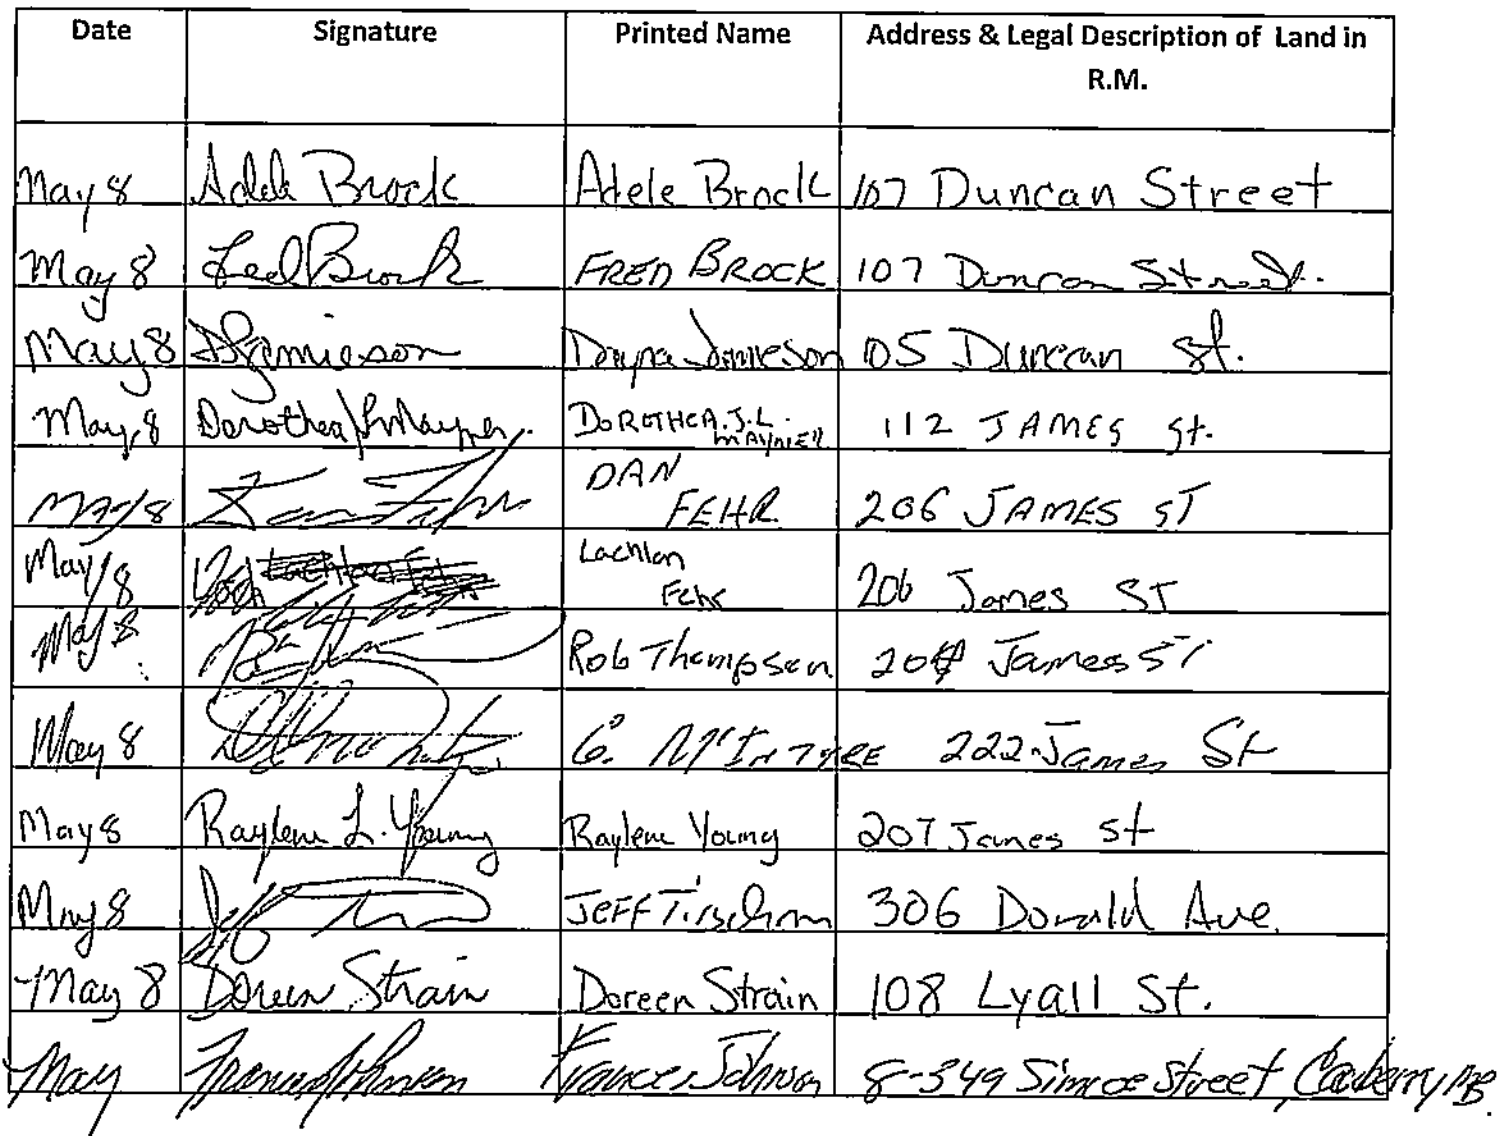 Date Signature Printed Name Address & Legal Description of Land in
R.M.
May 8 Adele Brock Adele Brock 107 Duncan Street
May 8 Fred Brock FRED BROCK 107 Duncan Street.
May 8 DJamieson Dayna Jamieson 105 Duncan St.
May, 8 Dorothea DOROTHEA. J. L. MAYNER 112 JAMES St.
May/8 Dan Fehr DAN FEHR 206 JAMES ST
May/8 Lachlan Fehr 206 James ST
May 8 Rob Thompson James ST
May 8 McINTYRE 222 James St
May 8 Raylene L. Young Raylene Young 207 James St
May 8 JEFF 306 Donald Ave.
May 8 Doreen Strain Doreen Strain 108 Lyall St.
May Frances Johnson Frances Johnson 8-349 Simcoe Street, Carberry MB.